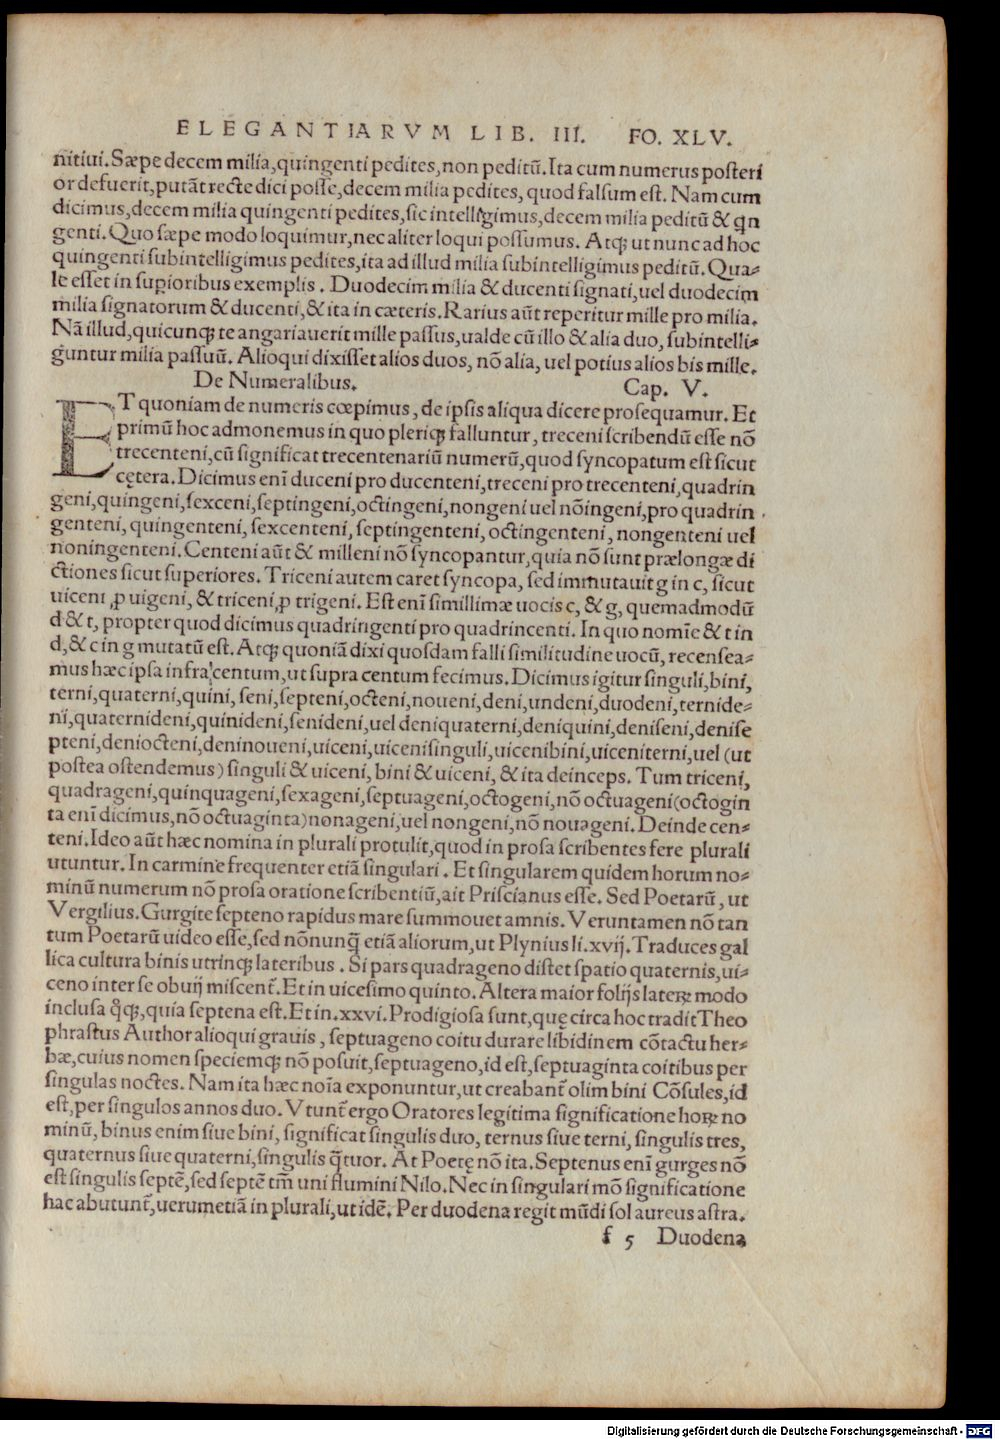 ELEGANTIARVM LIB. III. FO. XLV.
nitiui. Sæpe decem milia, quingenti pedites, non peditũ. Ita cum numerus posteri
or defuerit, putãt recte dici posse, decem milia pedites, quod falsum est. Nam cum
dicimus, decem milia quingenti pedites, sic intelligimus, decem milia peditũ & qn
genti. Quo sæpe modo loquimur, nec aliter loqui possumus. Atq; ut nunc ad hoc
quingenti subintelligimus pedites, ita ad illud milia subintelligimus peditũ. Qua-
le esset in superioribus exemplis. Duodecim milia & ducenti signati, uel duodecim
milia signatorum & ducenti, & ita in cæteris. Rarius aũt reperitur mille pro milia.
Nã illud, quicunq; te angariauerit mille passus, ualde cũ illo & alia duo, subintelli-
guntur milia passuũ. Alioqui dixisset alios duos, nõ alia, uel potius alios bis mille.
De Numeralibus. Cap. V.
ET quoniam de numeris cœpimus, de ipsis aliqua dicere prosequamur. Et
primũ hoc admonemus in quo pleriq; falluntur, treceni scribendũ esse nõ
trecenteni, cũ significat trecentenariũ numerũ, quod syncopatum est sicut
cętera. Dicimus enĩ duceni pro ducenteni, treceni pro trecenteni, quadrin
geni, quingeni, sexceni, septingeni, octingeni, nongeni uel nõingeni, pro quadrin
genteni, quingenteni, sexcenteni, septingenteni, octingenteni, nongenteni uel
noningenteni. Centeni aũt & milleni nõ syncopantur, quia nõ sunt prælongæ di
ctiones sicut superiores. Triceni autem caret syncopa, sed immutauit g in c, sicut
uiceni ꝓ uigeni, & triceni ꝓ trigeni. Est enĩ simillimæ uocis c, & g, quemadmodũ
d & t, propter quod dicimus quadringenti pro quadrincenti. In quo nomĩe & t in
d, & c in g mutatũ est. Atq; quoniã dixi quosdam falli similitudine uocũ, recensea-
mus hæc ipsa infra centum, ut supra centum fecimus. Dicimus igitur singuli, bini,
terni, quaterni, quini, seni, septeni, octeni, noueni, deni, undeni, duodeni, ternide-
ni, quaternideni, quinideni, senideni, uel deniquaterni, deniquini, deniseni, denise
pteni, deniocteni, deninoueni, uiceni, uicenisinguli, uicenibini, uiceniterni, uel (ut
postea ostendemus) singuli & uiceni, bini & uiceni, & ita deinceps. Tum triceni,
quadrageni, quinquageni, sexageni, septuageni, octogeni, nõ octuageni (octogin
ta enĩ dicimus, nõ octuaginta) nonageni, uel nongeni, nõ nouageni. Deinde cen-
teni. Ideo aũt hæc nomina in plurali protulit, quod in prosa scribentes fere plurali
utuntur. In carmine frequenter etiã singulari. Et singularem quidem horum no-
minũ numerum nõ prosa oratione scribentiũ, ait Priscianus esse. Sed Poetarũ, ut
Vergilius. Gurgite septeno rapidus mare summouet amnis. Veruntamen nõ tan
tum Poetarũ uideo esse, sed nõnunq̃ etiã aliorum, ut Plynius li. xvij. Traduces gal
lica cultura binis utrinq; lateribus. Si pars quadrageno distet spatio quaternis, ui-
ceno inter se obuij miscent̃. Et in uicesimo quinto. Altera maior folijs lateꝝ modo
inclusa q̊q;, quia septena est. Et in. xxvi. Prodigiosa sunt, quę circa hoc tradit Theo
phrastus Author alioqui grauis, septuageno coitu durare libidinem cõtactu her-
bæ, cuius nomen speciemq; nõ posuit, septuageno, id est, septuaginta coitibus per
singulas noctes. Nam ita hæc noĩa exponuntur, ut creabant̃ olim bini Cõsules, id
est, per singulos annos duo. Vtunt̃ ergo Oratores legitima significatione hoꝝ no
minũ, binus enim siue bini, significat singulis duo, ternus siue terni, singulis tres,
quaternus siue quaterni, singulis q̃tuor. At Poetę nõ ita. Septenus enĩ gurges nõ
est singulis septẽ, sed septẽ tm̃ uni flumini Nilo. Nec in singulari mõ significatione
hac abutunt̃, uerumetiã in plurali, ut idẽ. Per duodena regit mũdi sol aureus astra.
f 5 Duodena
Digitalisierung gefördert durch die Deutsche Forschungsgemeinschaft - DFG